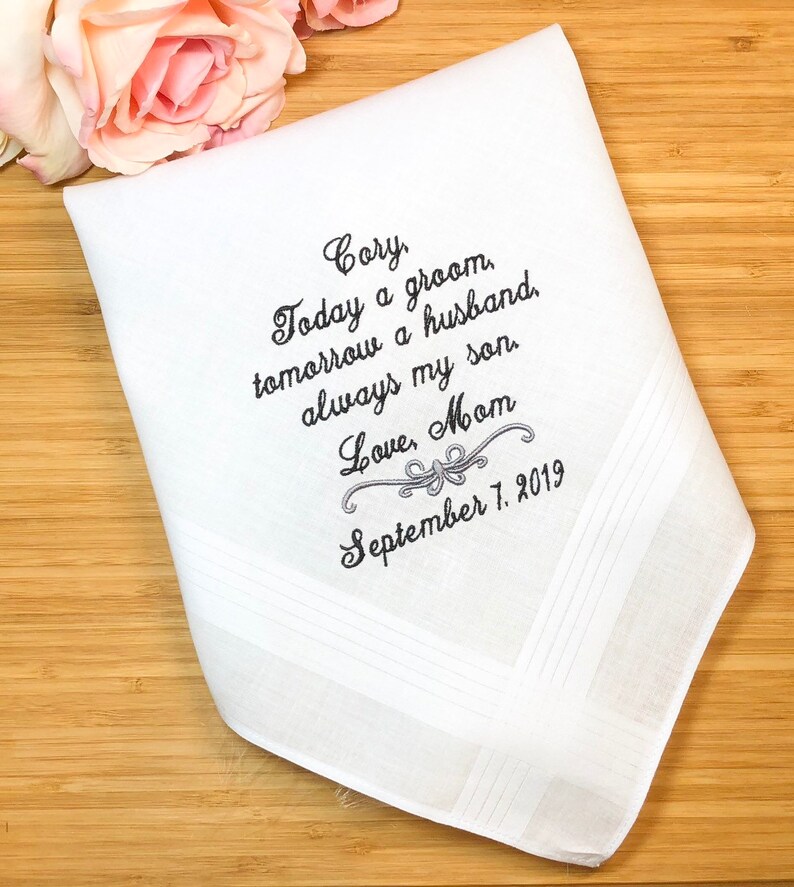 Cory,
Today a groom,
tomorrow a husband,
always my son.
Love, Mom
September 7, 2019